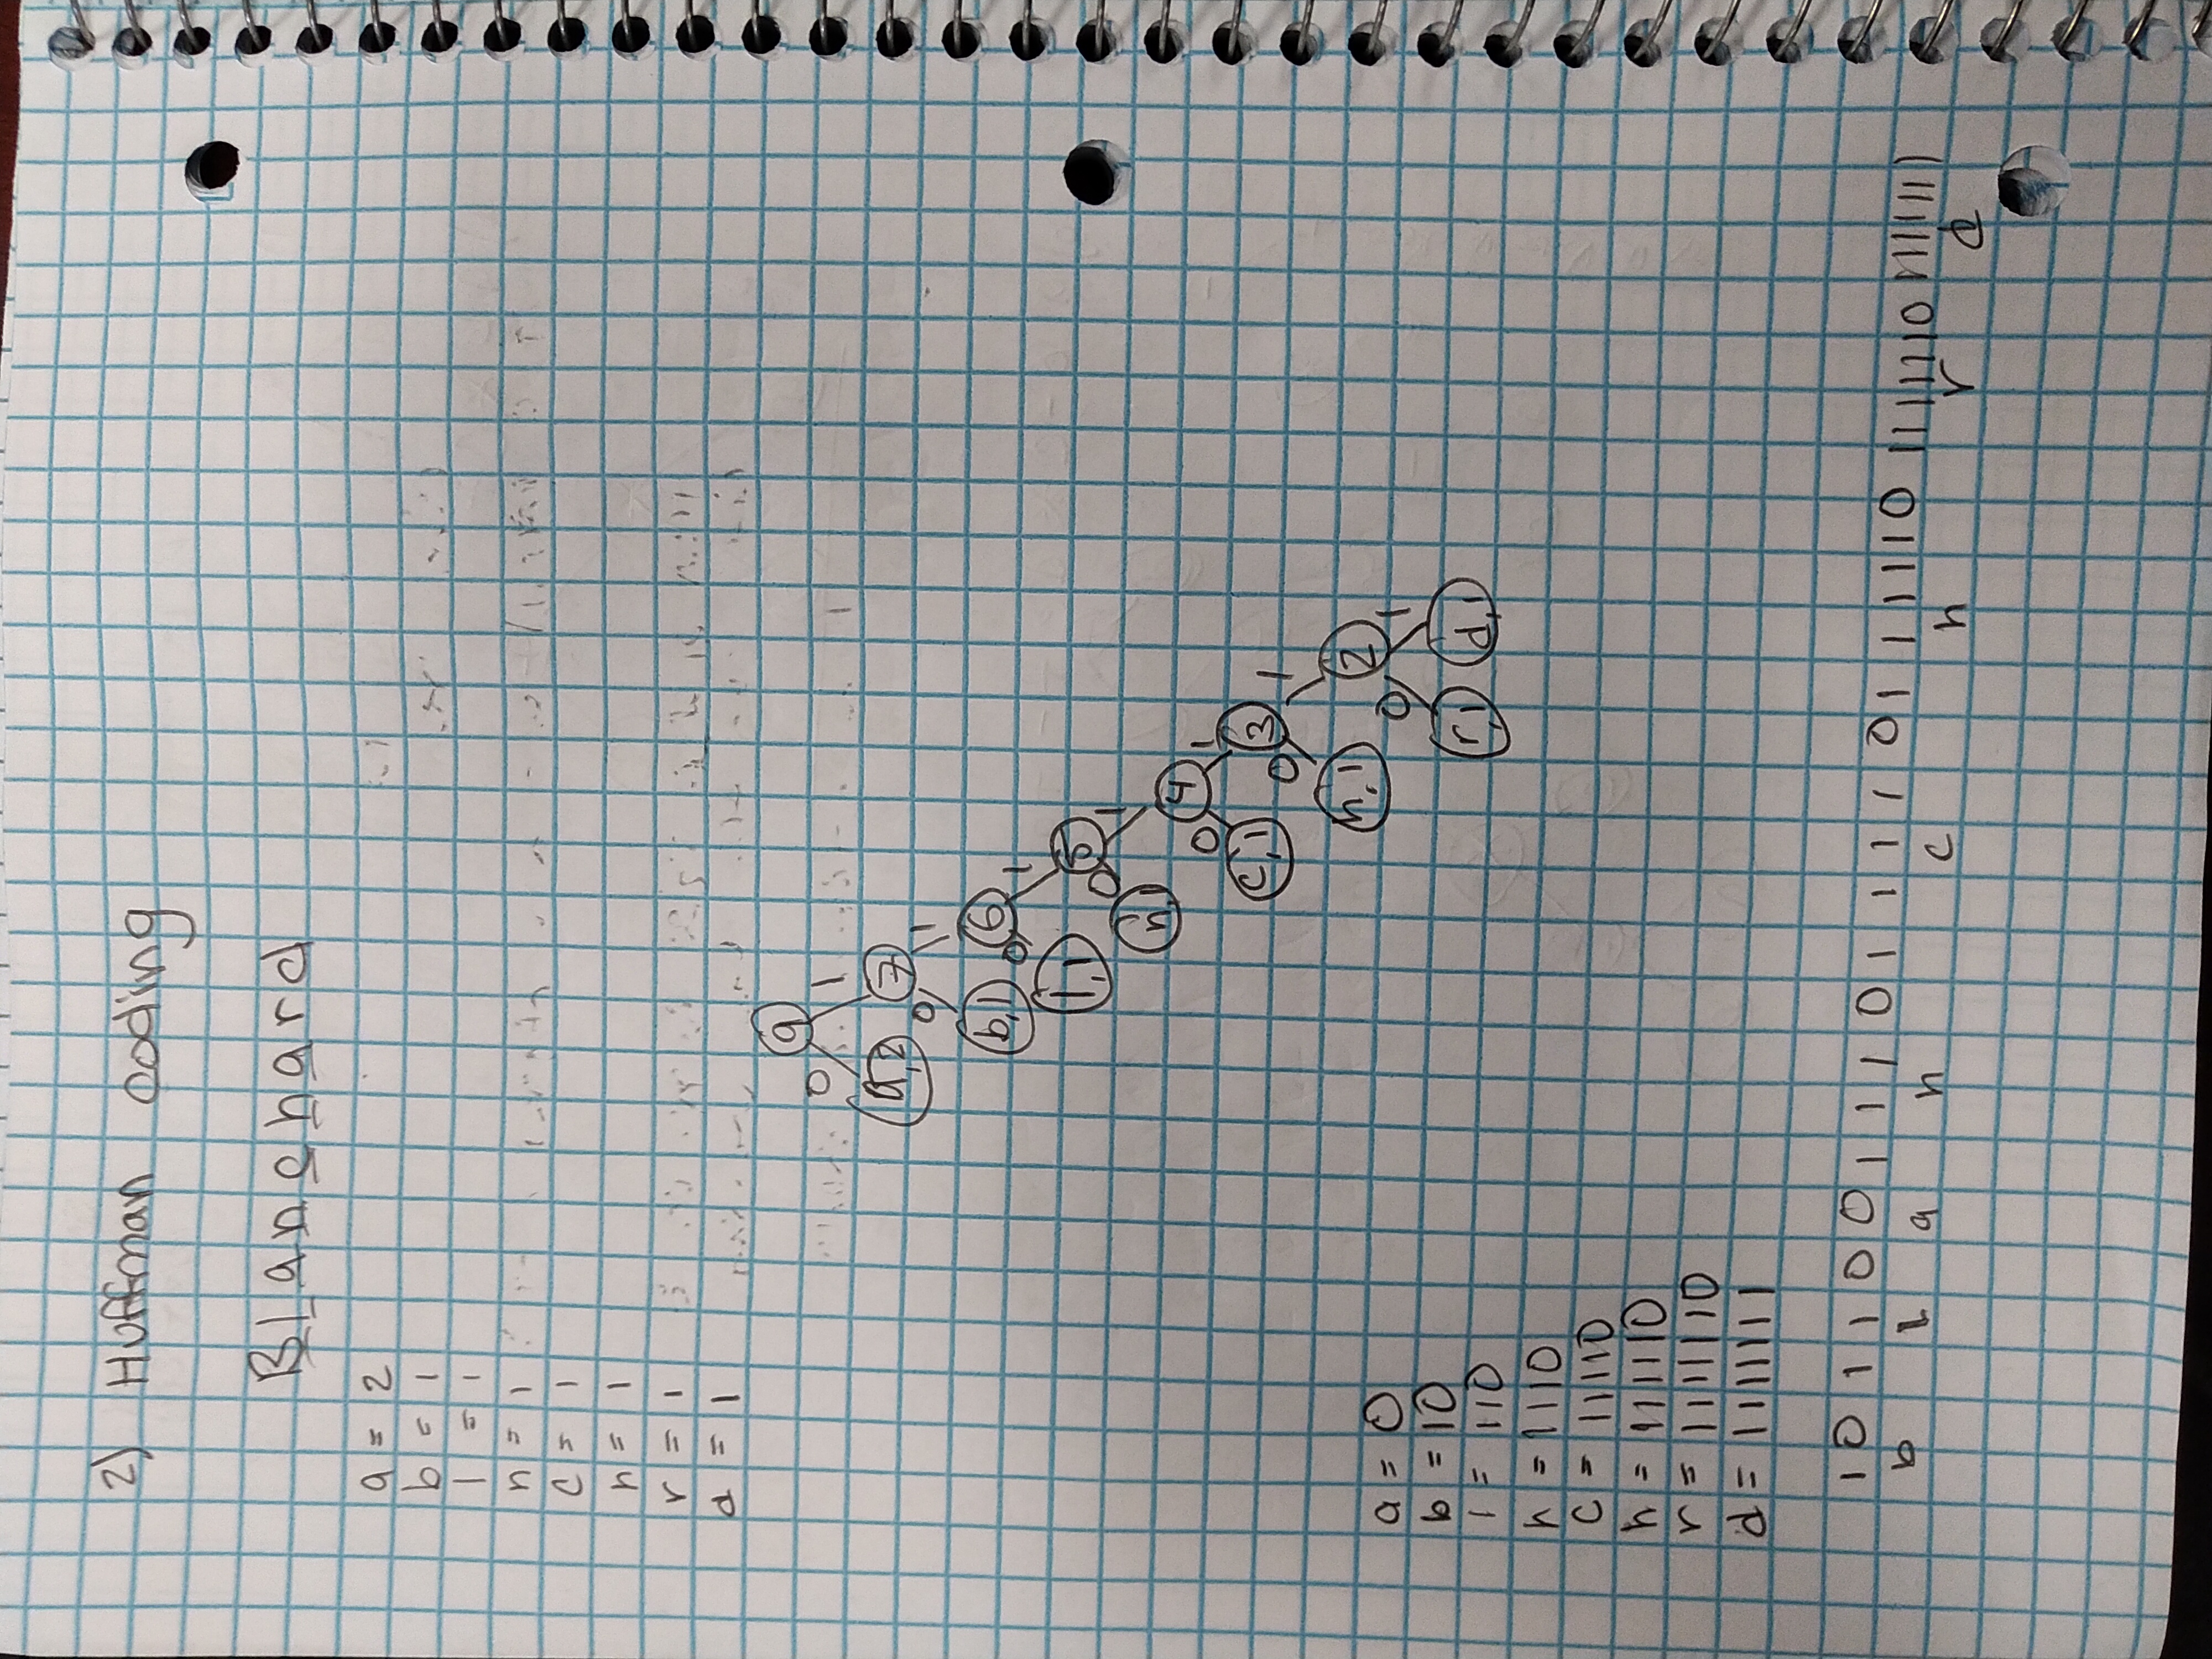 2) Huffman coding
Blanchard
a = 2
b = 1
l = 1
n = 1
c = 1
h = 1
r = 1
d = 1
9
0 1
a,2 7
0 1
b,1 6
0 1
l,1 5
0 1
n,1 4
0 1
c,1 3
0 1
h,1 2
0 1
r,1 d,1
a = 0
b = 10
l = 110
n = 1110
c = 11110
h = 111110
r = 1111110
d = 1111111
1 0 1 1 0 0 1 1 1 0 1 1 1 1 0 1 1 1 1 1 0 1111110 1111111
b l a n c h r d